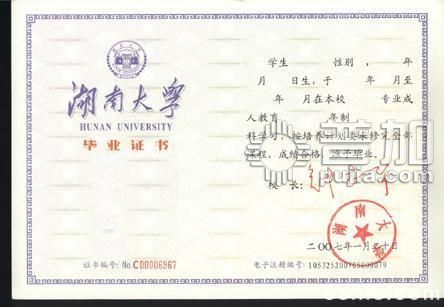 湖南大学
HUNAN UNIVERSITY
毕业证书
学生 性别 ， 年
月 日生，于 年 月至
年 月在本校 专业成
人教育 年制
科学习，按培养计划要求修完全部
课程，成绩合格，准予毕业。
校 长：
湖南大学
二〇〇七年一月二十日
证书编号：No.C00006967
电子注册编号：105325200705000079
善加
pujia.com